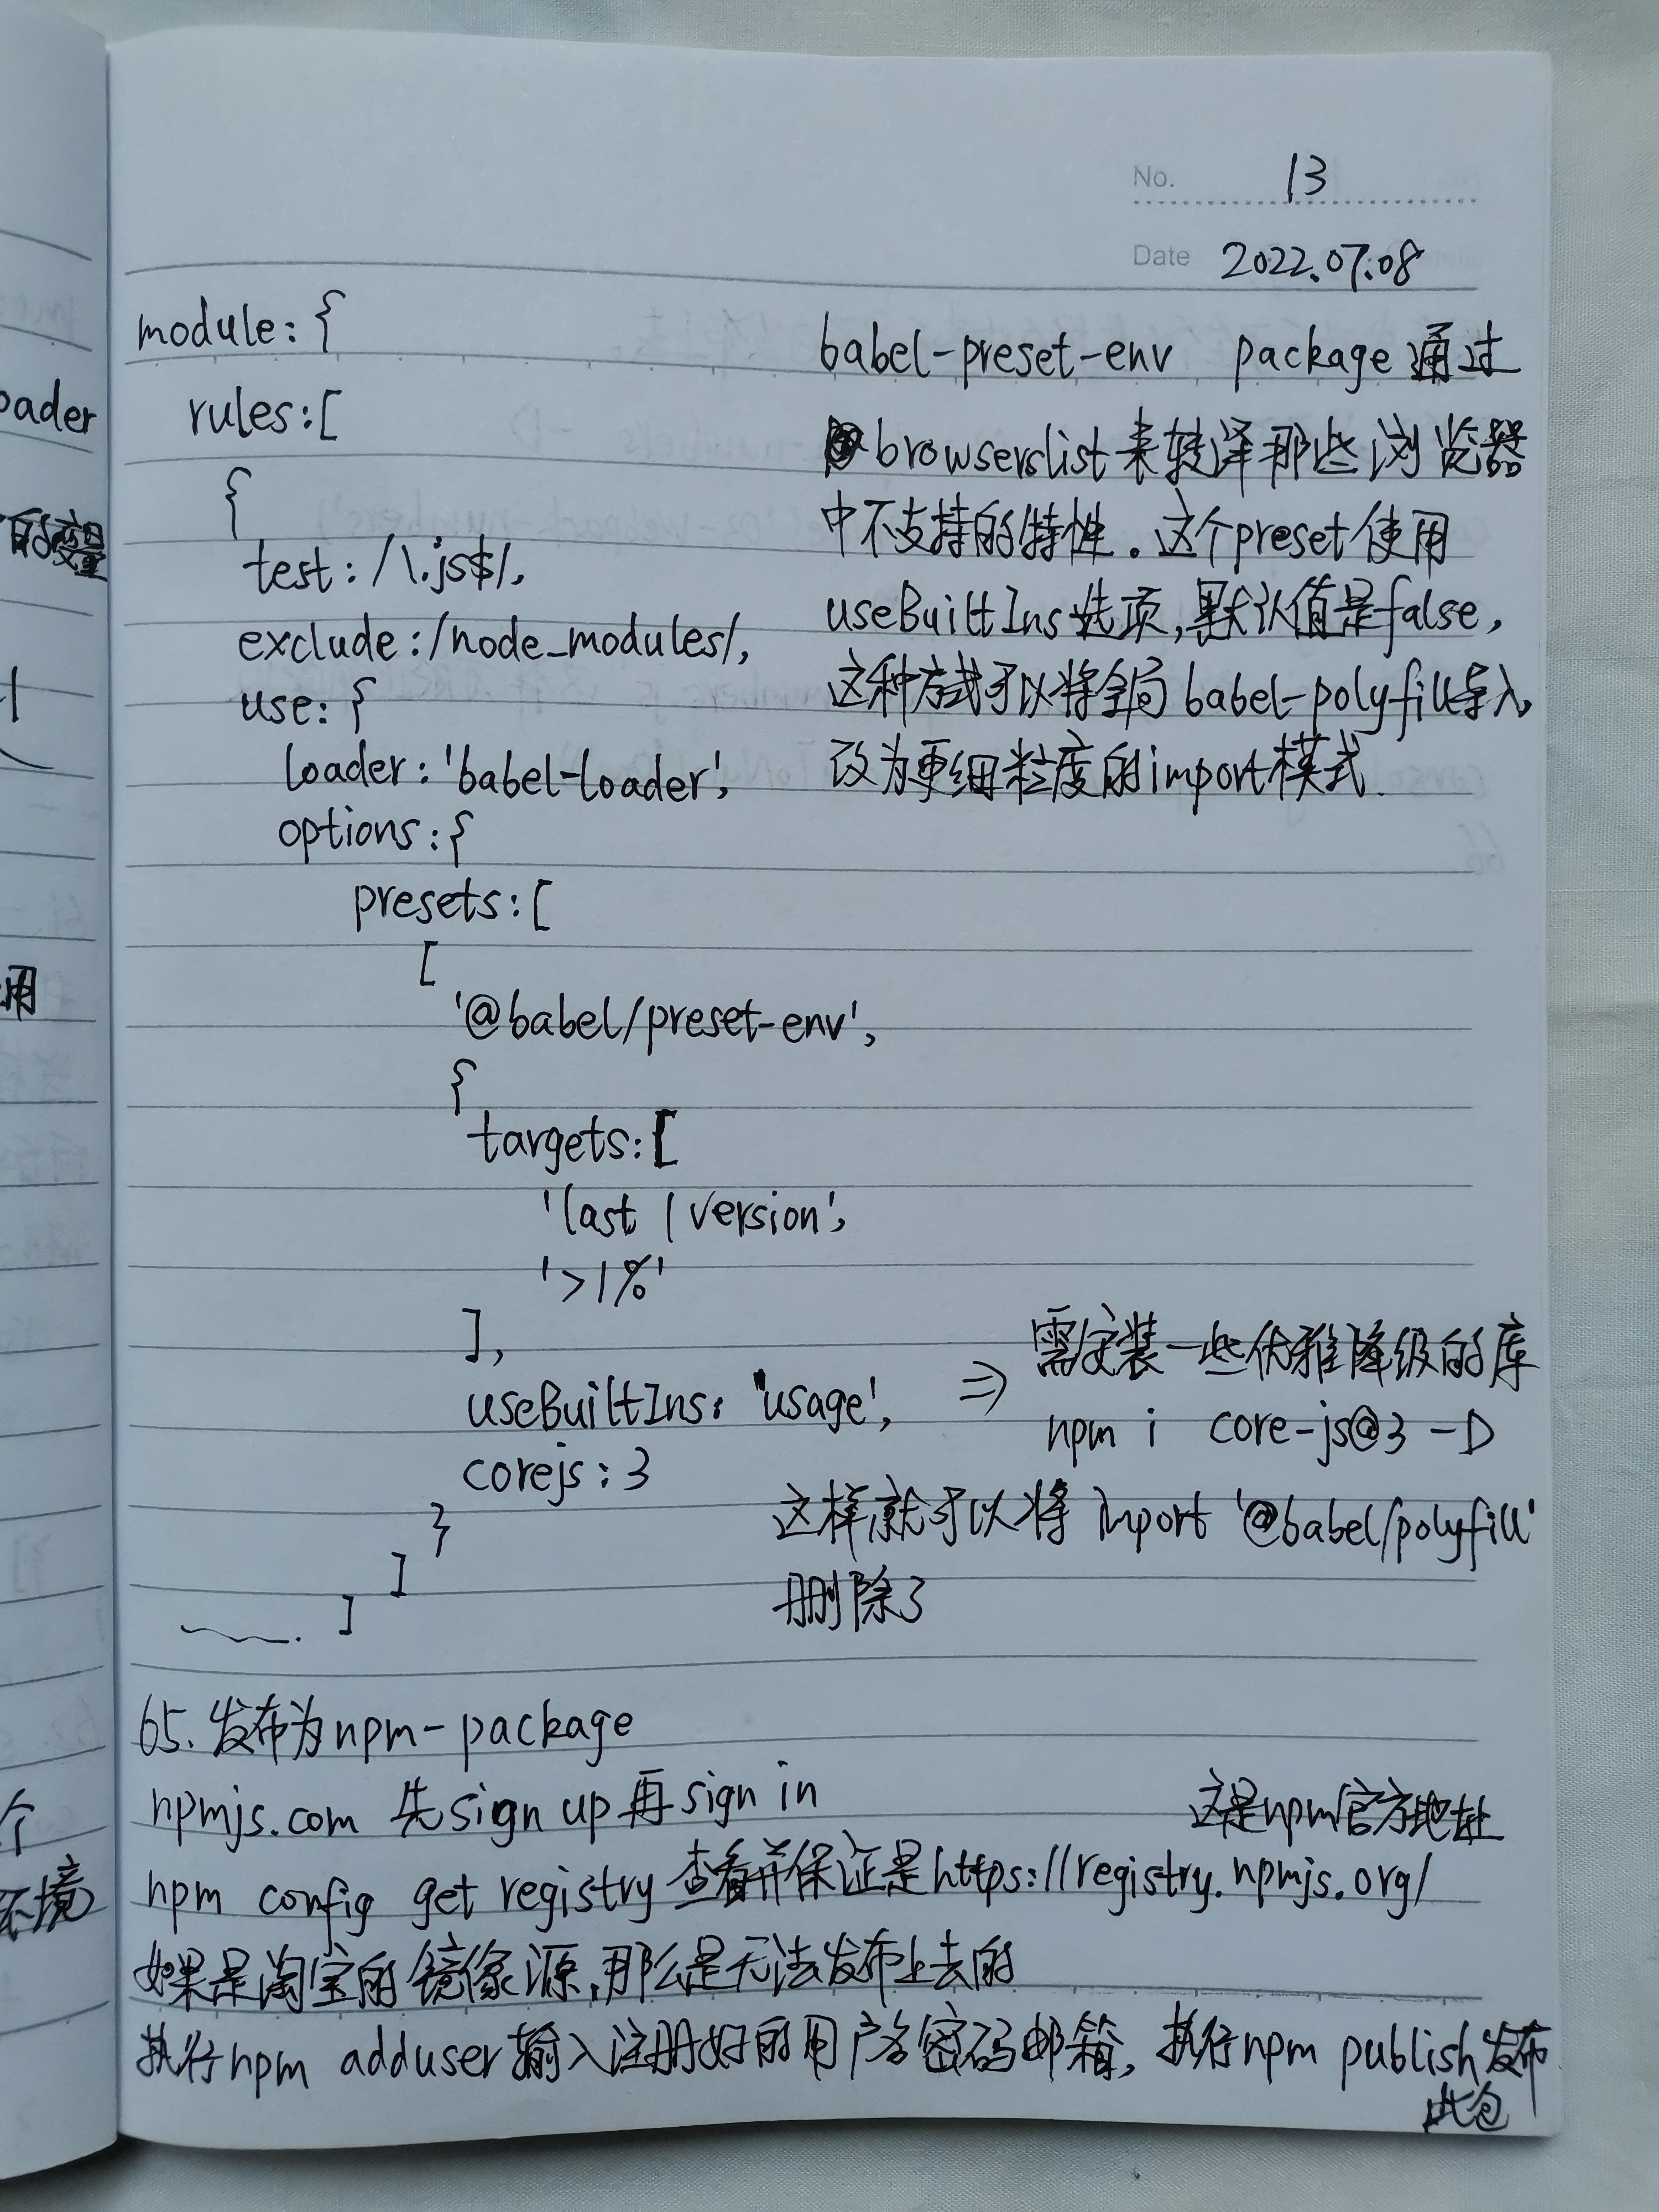 No. 13
Date 2022.07.08
module: {
rules:[
{
test: /\.js$/,
exclude:/node_modules/,
use: {
loader: 'babel-loader',
options:{
presets:[
[
'@babel/preset-env',
{
targets:[
'last 1 version',
'>1%'
],
useBuiltIns: 'usage',
corejs: 3
}
]
]
babel-preset-env package 通过
browserslist来转译那些浏览器
中不支持的特性。这个preset使用
useBuiltIns选项,默认值是false,
这种方式可以将全局babel-polyfill导入,
改为更细粒度的import模式.
⇒ 需安装一些优雅降级的库
npm i core-js@3 -D
这样就可以将 import '@babel/polyfill'
删除了
65.发布为npm-package
npmjs.com 先sign up再sign in
这是npm官方地址
npm config get registry 查看并保证是https://registry.npmjs.org/
如果是淘宝的镜像源,那么是无法发布上去的
执行npm adduser输入注册好的用户名密码邮箱, 执行npm publish发布
此包
oader
的变量
用
个
环境